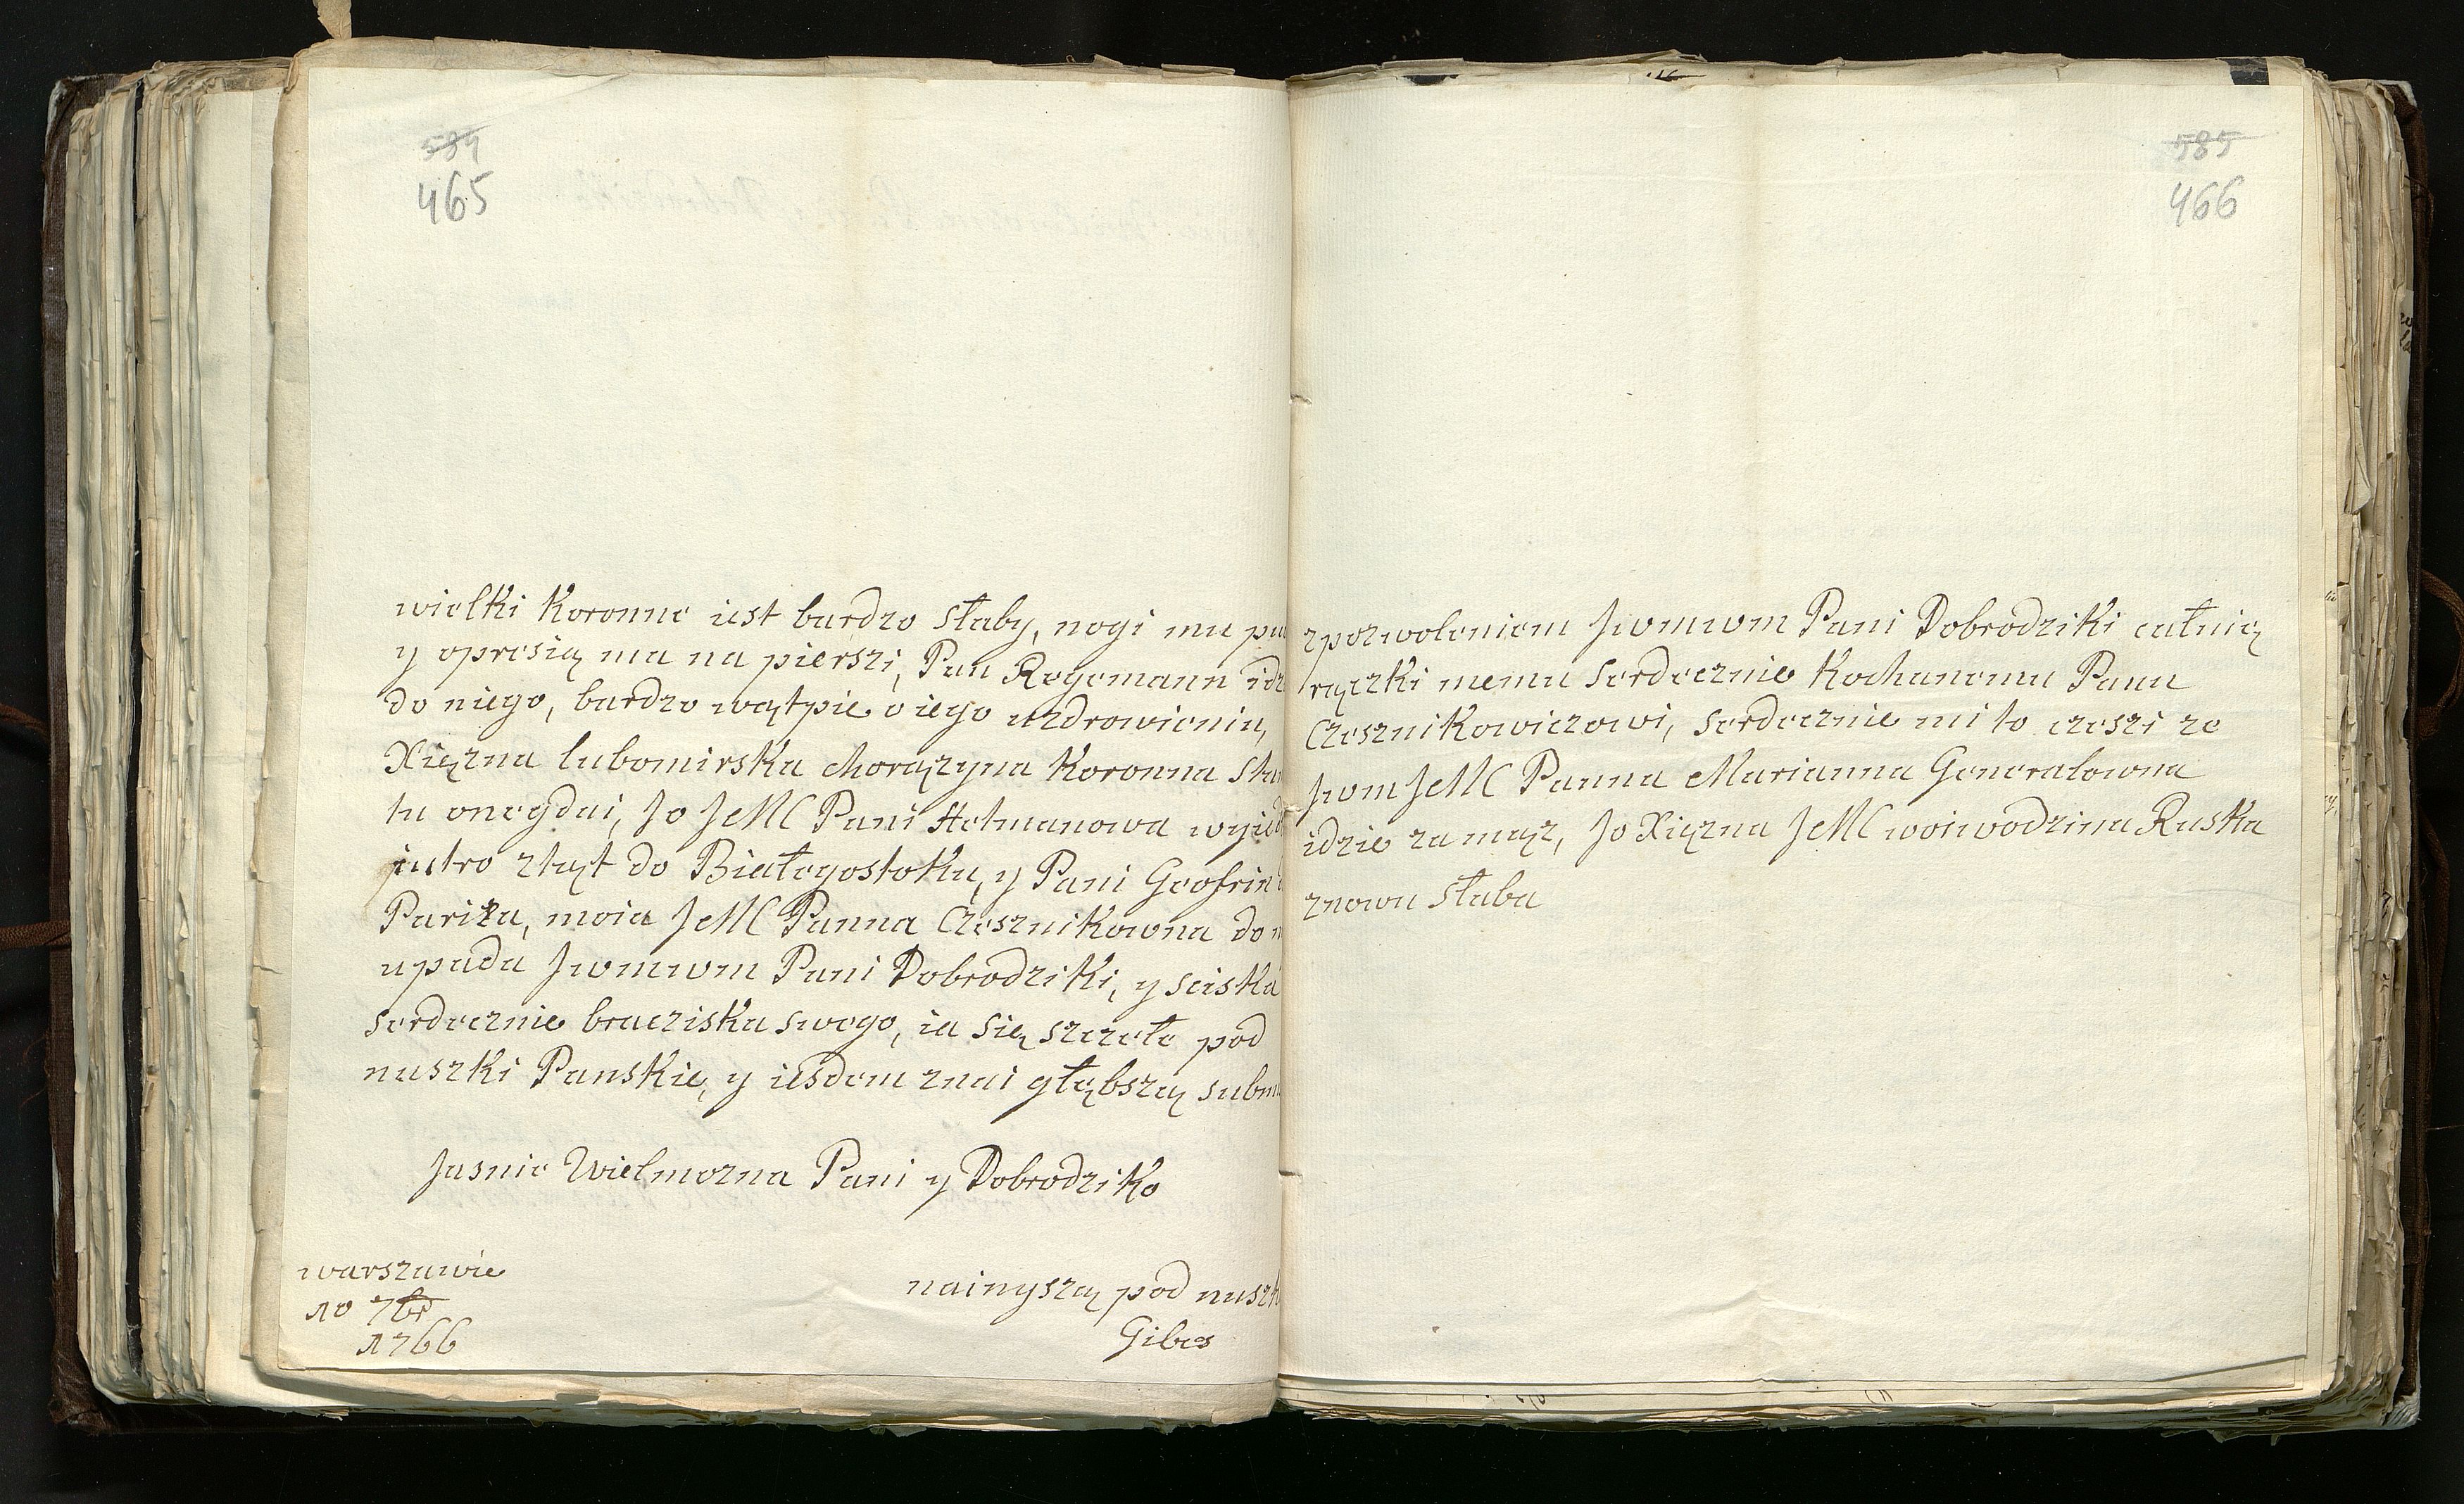 584
465
wielki Koronne iest bardzo słaby, nogi mu pu
y opresią ma na pierszi, Pan Regemann idz
do niego, bardzo wątpie o iego uzdrowieniu,
Xięzna lubomirska chorązyna Koronna sta
tu onegdai, Jo JeMC Pani Hetmanowa wyied
jutro ztąt do Białegostoku, y Pani Geofrin
Pariża, moia JeMC Panna Czesznikowna do n
upada Jwmwm Pani Dobrodziki, y sciska
serdecznie braciszka swego, ia się szczele pod
nuszki Panskie, y iesdem znai głębszą subm
Jasnie Wielmozna Pani y Dobrodziko
warszawie
10 7br
1766
nainyszą pod nuszk
Gibes
585
466
zpozwoleniem Jwmwm Pani Dobrodziki całuię
rączki memu serdecznie Kochanemu Panu
Czesznikowiczowi, serdecznie mi to czeszi ze
Jwm JeMC Panna Marianna Generalowna
idzie za mąz, Jo Xięzna JeMC woiwodzina Ruska
znowu słaba